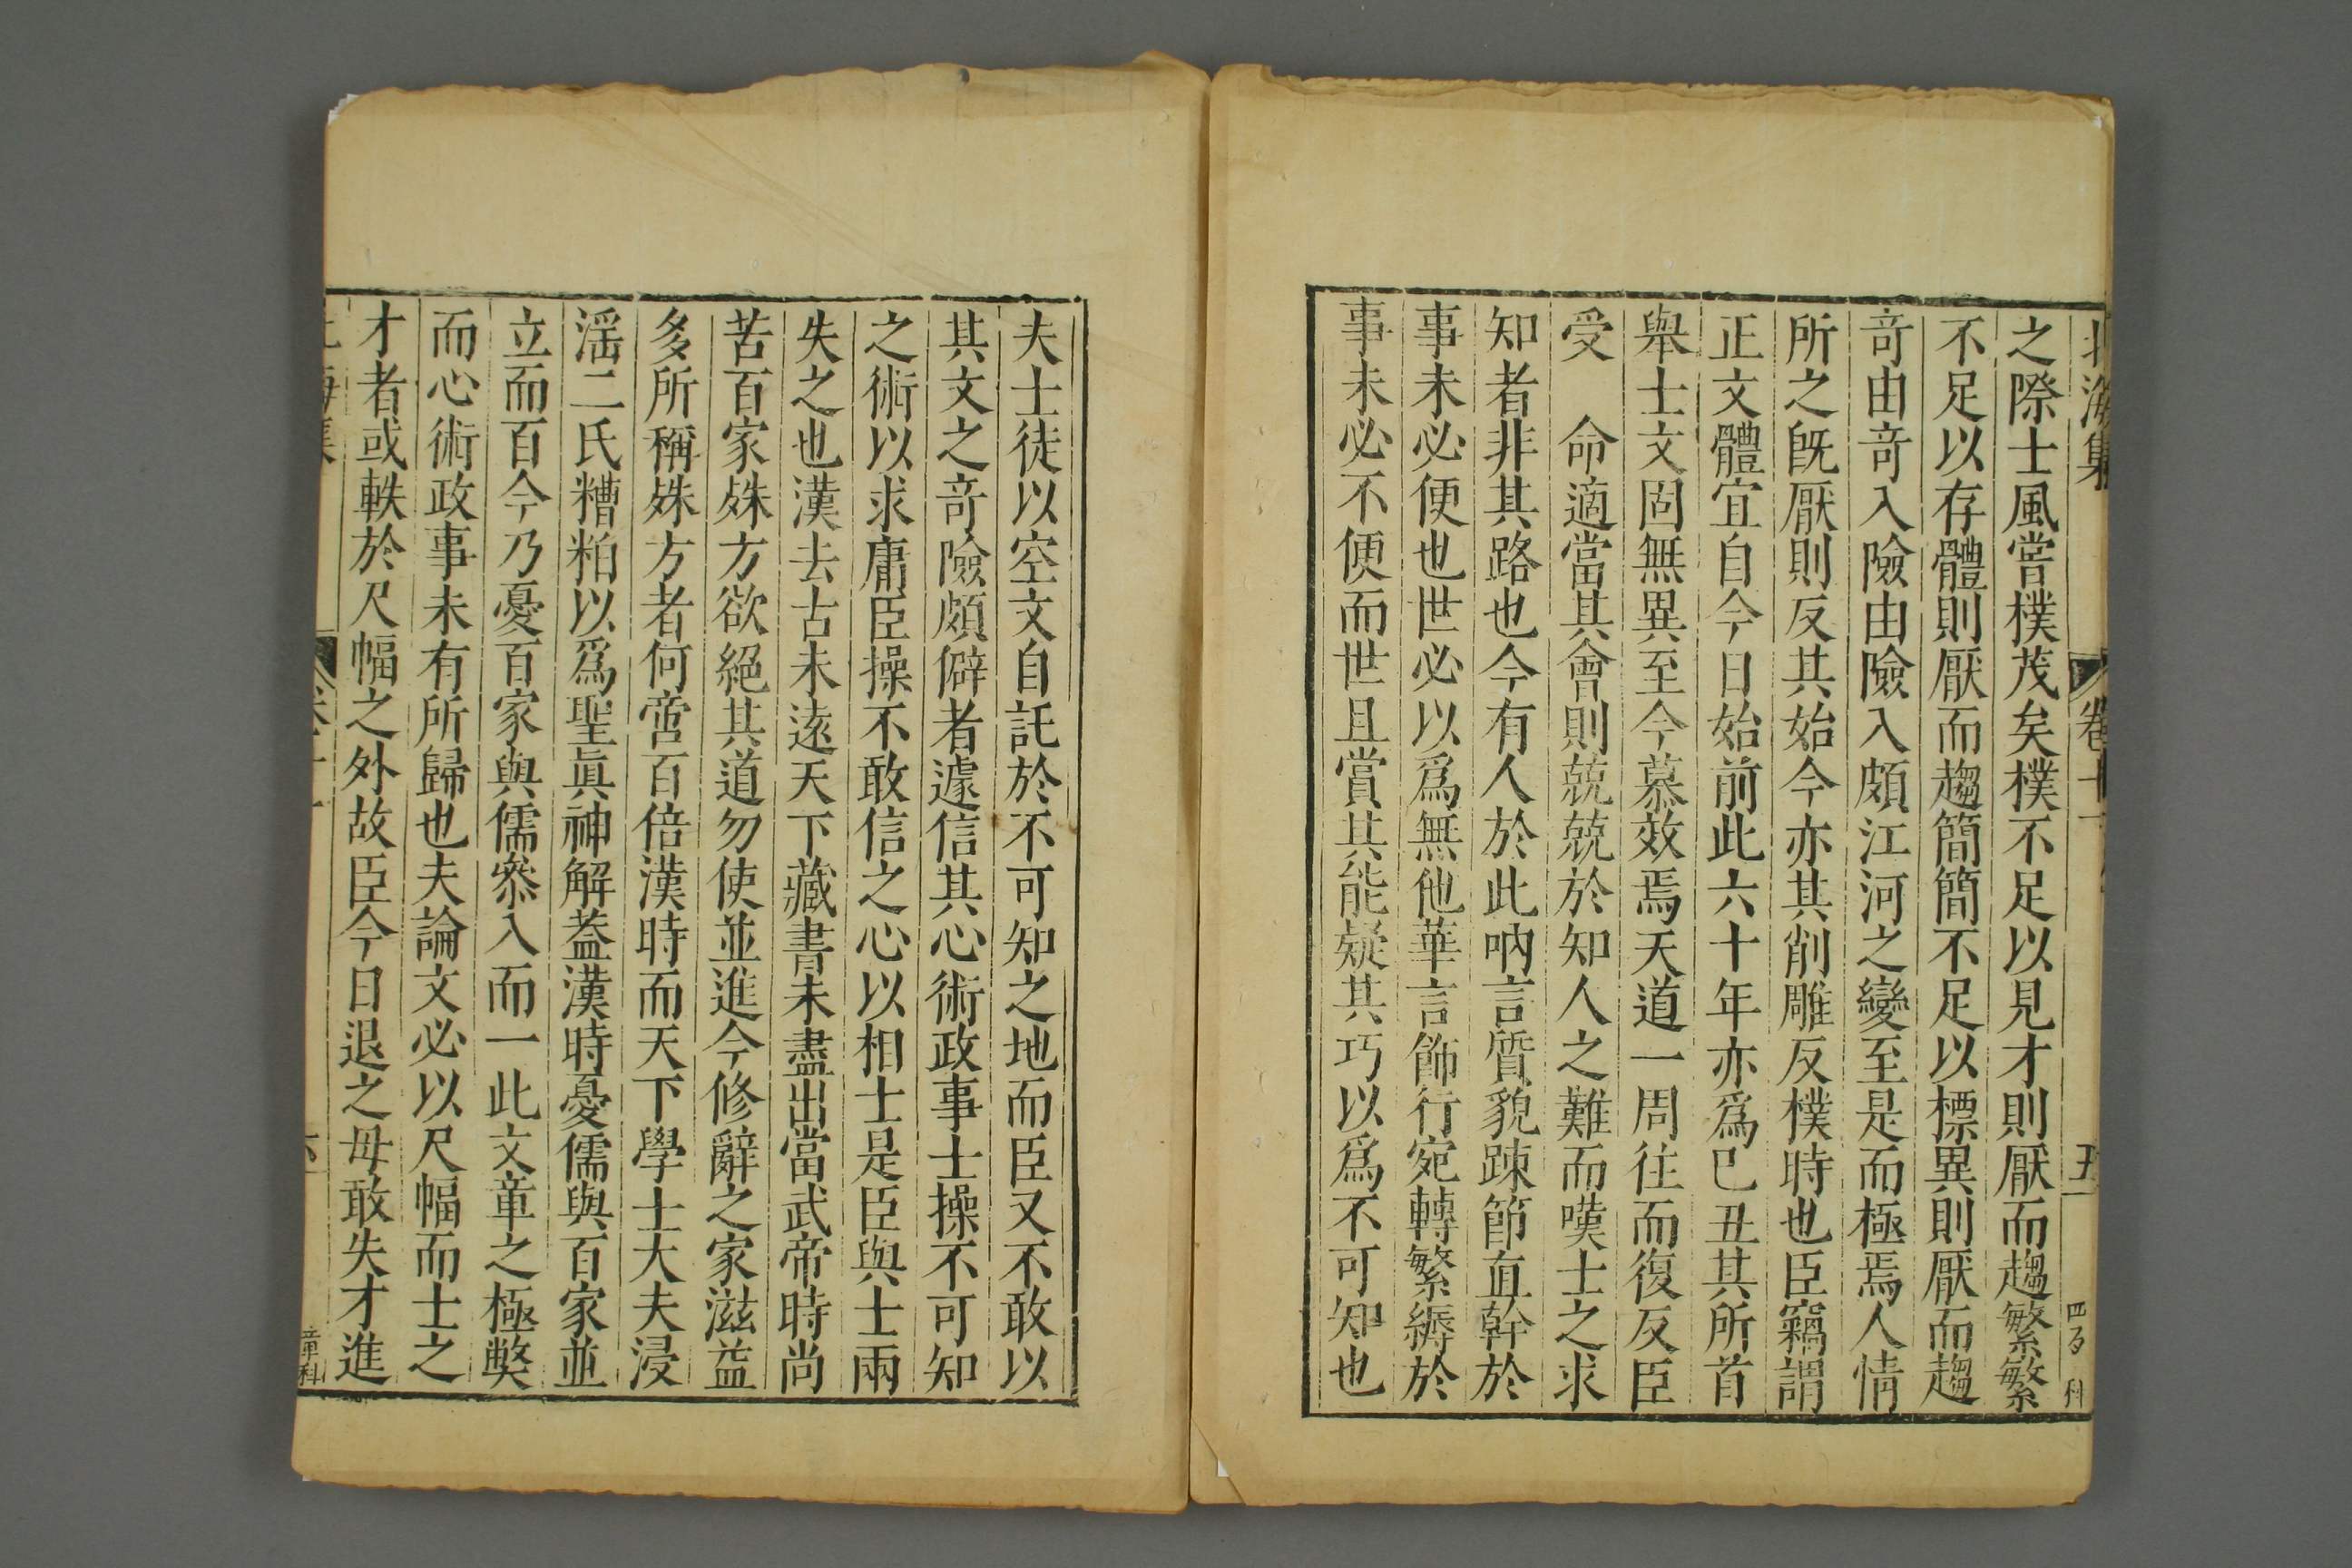 北海集 卷十一 五 四百 科
之際士風嘗樸茂矣樸不足以見才則厭而趨繁繁
不足以存體則厭而趨簡簡不足以標異則厭而趨
竒由竒入險由險入頗江河之變至是而極焉人情
所之旣厭則反其始今亦其削雕反樸時也臣竊謂
正文體宜自今日始前此六十年亦爲巳丑其所首
舉士文固無異至今慕效焉天道一周往而復反臣
受 命適當其會則兢兢於知人之難而嘆士之求
知者非其路也今有人於此吶言質貌踈節直幹於
事未必便也世必以爲無他華言飾行宛轉繁縟於
事未必不便而世且賞其能疑其巧以爲不可知也
夫士徒以空文自託於不可知之地而臣又不敢以
其文之竒險頗僻者遽信其心術政事士操不可知
之術以求庸臣操不敢信之心以相士是臣與士兩
失之也漢去古未遠天下藏書未盡出當武帝時尚
苦百家殊方欲絕其道勿使並進今修辭之家滋益
多所稱殊方者何啻百倍漢時而天下學士大夫浸
淫二氏糟粕以爲聖眞神解葢漢時憂儒與百家並
立而百今乃憂百家與儒叅入而一此文章之極獘
而心術政事未有所歸也夫論文必以尺幅而士之
才者或軼於尺幅之外故臣今日退之毋敢失才進
海集 卷十一 六 章科